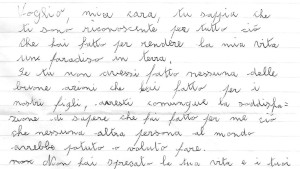 Voglio, mia cara, tu sappia che
ti son riconoscente per tutto ciò
che hai fatto per rendere la mia vita
un paradiso in terra.
Se tu non avessi fatto nessuna delle
buone azioni che hai fatto per i
nostri figli, avresti comunque la soddisfa-
zione di sapere che hai fatto per me ciò
che nessuna altra persona al mondo
avrebbe potuto o voluto fare.
Non hai sprecato la tua vita e i tuoi